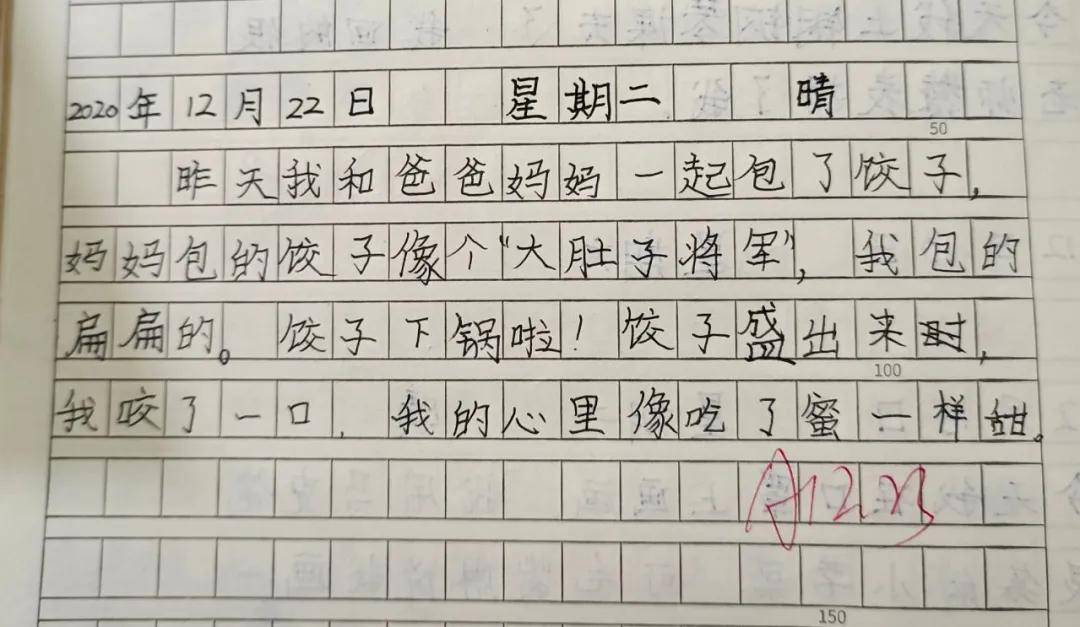 2020年12月22日 星期二 晴
50
昨天我和爸爸妈妈一起包了饺子,
妈妈包的饺子像个“大肚子将军”, 我包的
扁扁的。饺子下锅啦！饺子盛出来时,
100
我咬了一口, 我的心里像吃了蜜一样甜。
A12.23
150